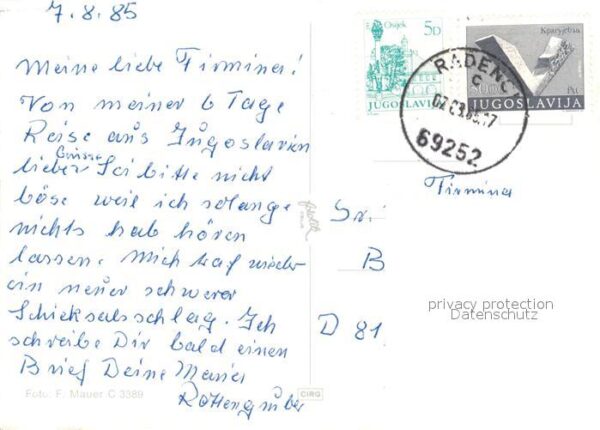 7.8.85
Meine liebe Firmina!
Von meiner 6 Tage
Reise aus Jugoslavien
liebe Grüsse
Sei bitte nicht
böse weil ich solange
nichts hab hören
lassen. Mich traf wieder
ein neuer schwerer
Schicksalsschlag. Ich
schreibe Dir bald einen
Brief Deine Maria
Rottengruber
Foto: F. Mauer C 3389
CIRG
Osijek
5D
JUGOSLAVIJA
JUGOSLAVIJA
RADENCI
C
69252
Firmina
B
D 81
privacy protection
Datenschutz